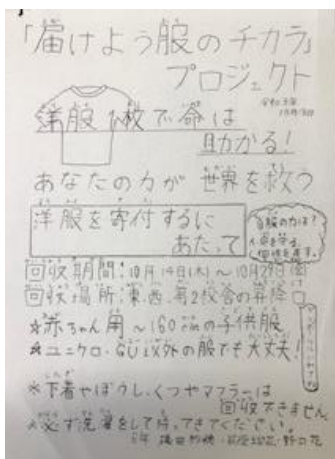 「届けよう服のチカラ」
プロジェクト
洋服1枚で命は
助かる!
あなたの力が 世界を救う
洋服を寄付するに
あたって
服の力は?
回収期間:10月14日(木)〜10月29日(金)
回収場所:東、西、第2校舎の昇降口
☆赤ちゃん用〜160cmの子供服
☆ユニクロ・GU以外の服でも大丈夫!
※下着やぼうし、くつやマフラーは
回収できません。
※必ず洗濯をして持ってきてください。
6年